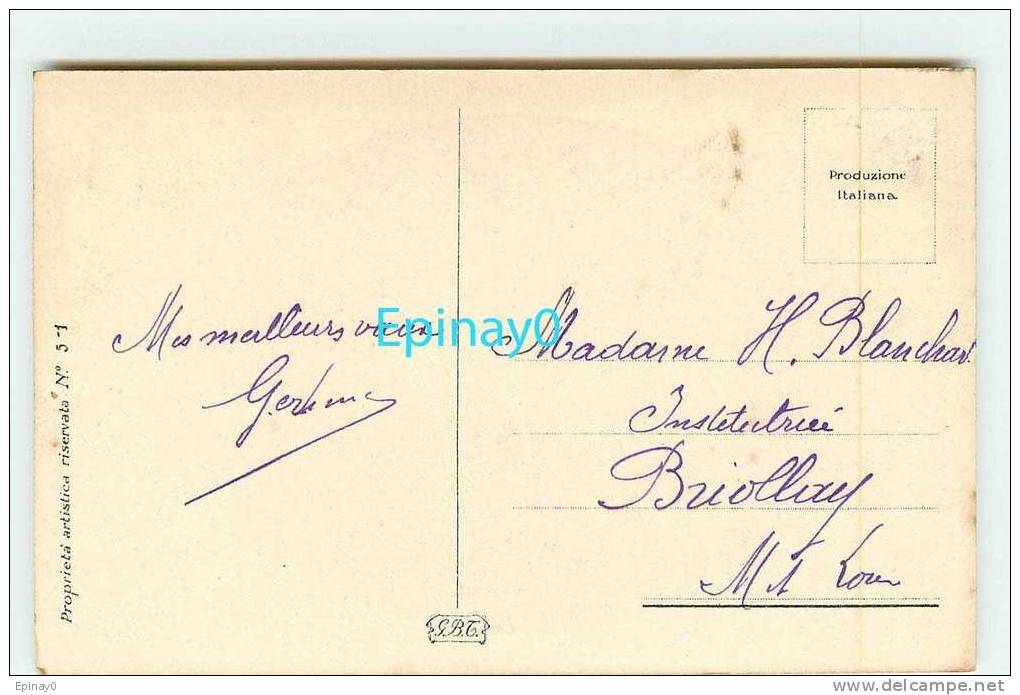 Produzione
Italiana
Mes meilleurs vœux
Epinay0
Madame H. Blanchard
Institutrice
Briollay
M et Loire
Proprietà artistica riservata Nº 5-1
G.B.T.
Epinay0
delcampe.net